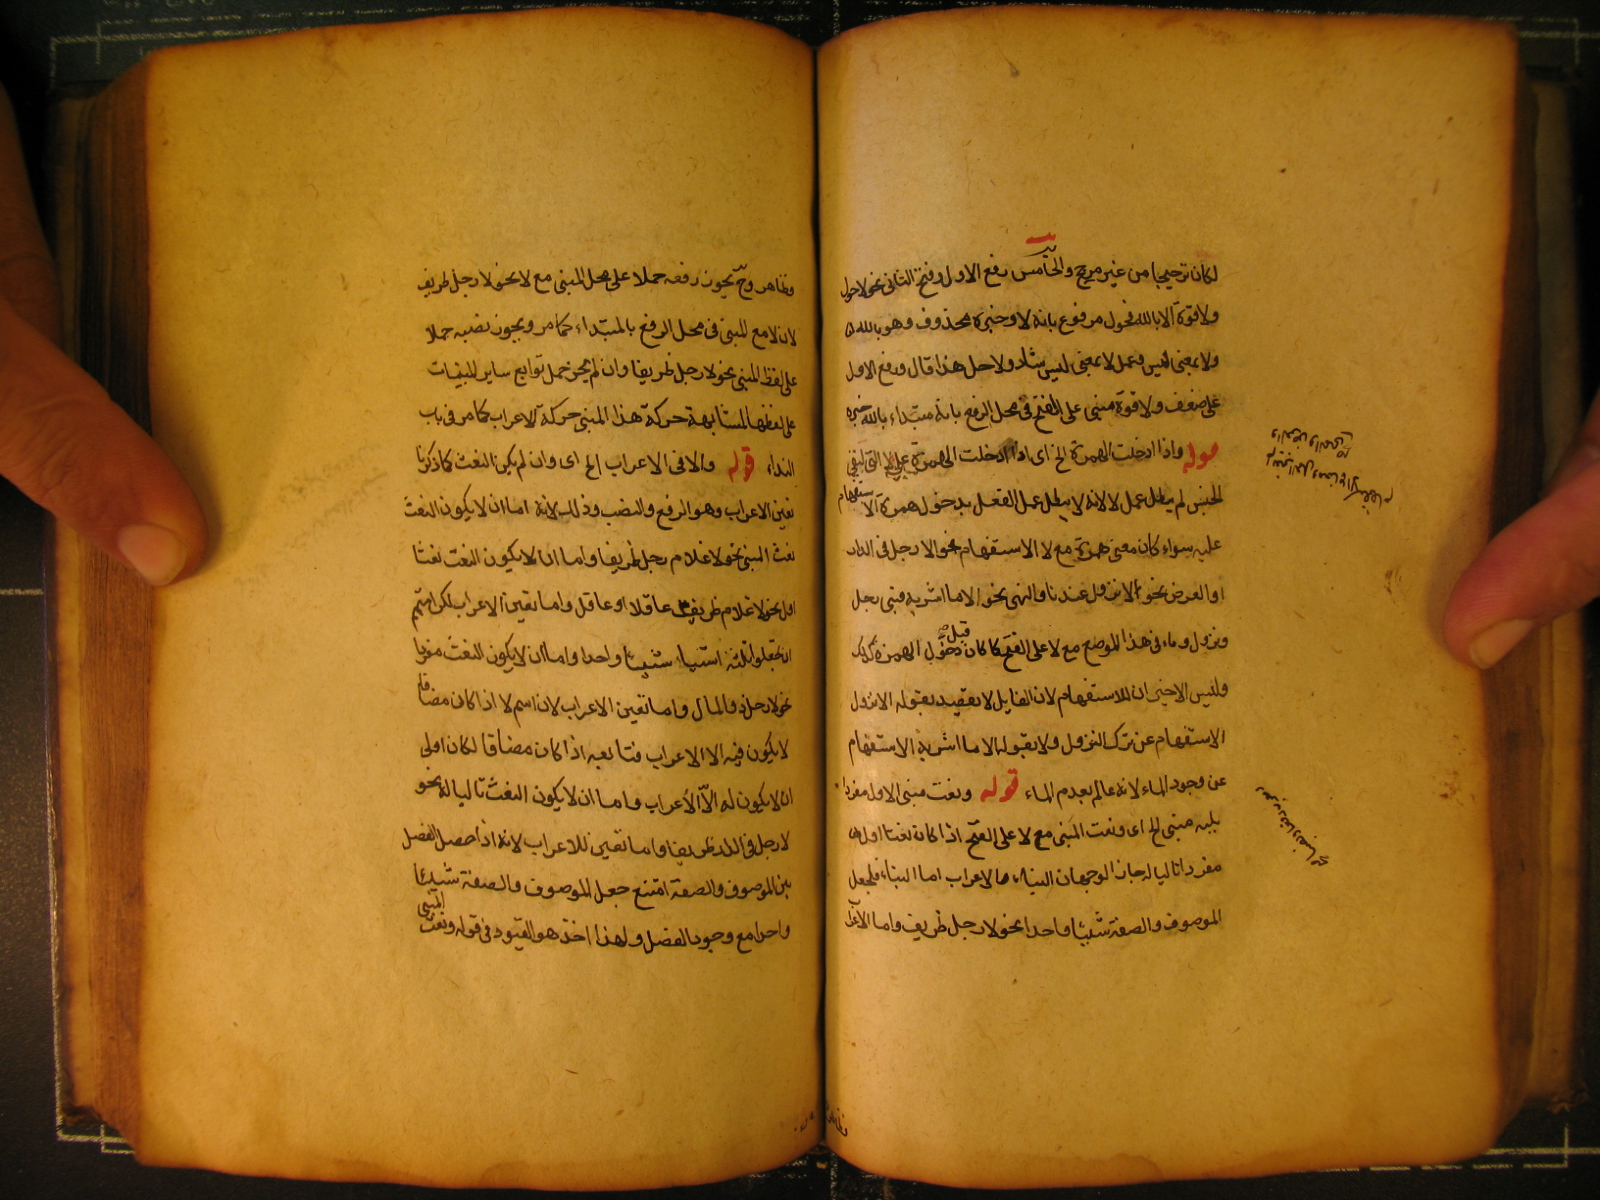 لكان ترجيحا من غير مرجح والخامس رفع الاول وفتح الثانى نحو لا حول
ولا قوة الا بالله فحول مرفوع بانه لا وخبره محذوف وهو بالله
ولا بمعنى ليس وعمل لا بمعنى ليس شاذ ولاجل هذا قال ورفع الاول
على ضعف ولا قوة مبنى على الفتح فى محل الرفع بانه مبتداء بالله خبره
قوله واذا دخلت الهمزة الخ اى اذا ادخلت الهمزة على لا التى لنفى
الجنس لم يبطل عمل لا لانه لا يبطل عمل الفعل بدخول همزة الاستفهام
عليه سواء كان معنى همزة مع لا الاستفهام نحو الا رجل فى الدار
او العرض نحو الا نزول عندنا والتمنى نحو الا ماء اشربه فبنى رجل
ونزول وماء فى هذا الموضع مع لا على الفتح كما كان قبل دخول الهمزة كذلك
وليس الاخيران للاستفهام لان القايل لا يقصد بقوله الا نزول
الاستفهام عن ترك النزول ولا بقوله الا ماء اشربه الاستفهام
عن وجود الماء لانه عالم بعدم الماء قوله ونعت مبنى الاول مفردا
يليه مبنى الخ اى ونعت المبنى مع لا على الفتح اذا كان نعتا اول
مفردا تاليا له جاز الوجهان البناء والاعراب اما البناء فلجعل
الموصوف والصفة شيئا واحدا نحو لا رجل ظريف واما الاعراب
وظاهر وح يجوز رفعه حملا على محل المبنى مع لا نحو لا رجل ظريف
لان لا مع المبنى فى محل الرفع بالمبتداء كما مر ويجوز نصبه حملا
على لفظ المبنى نحو لا رجل ظريفا وان لم يجز حمل توابع ساير المبنيات
على لفظها لمشابهة حركة هذا المبنى حركة الاعراب كما مر فى باب
النداء قوله والا فى الاعراب الخ اى وان لم يكن النعت كما ذكرنا
تعين الاعراب وهو الرفع والنصب وذلك لانه اما ان لا يكون النعت
نعت المبنى نحو لا غلام رجل ظريفا واما ان لا يكون النعت نعتا
اول نحو لا غلام ظريف عاقلا او عاقل واما تعين الاعراب
ان يجعلوا ثلثة اشياء شيئا واحدا واما ان لا يكون النعت مفردا
نحو لا رجل ذو المال واما تعين الاعراب لان اسم لا اذا كان مضافا
لا يكون فيه الا الاعراب فتابعه اذا كان مضافا لكان اولى
ان لا يكون له الا الاعراب واما ان لا يكون النعت تاليا له نحو
لا رجل فى الدار ظريفا واما تعين للاعراب لانه اذا حصل الفصل
بين الموصوف والصفة امتنع جعل الموصوف والصفة شيئا
واحدا مع وجود الفصل ولهذا اخذ هو القيود فى قوله ونعت المبنى